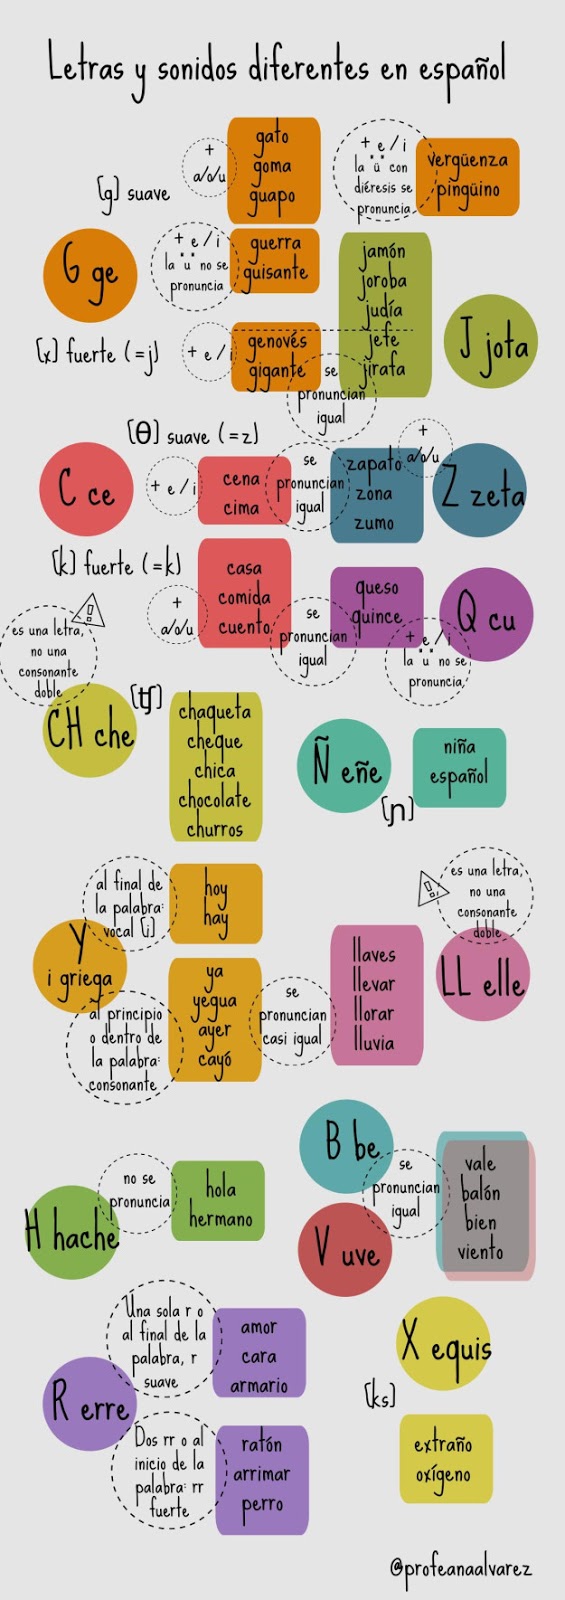 Letras y sonidos diferentes en español
[g] suave
+
a/o/u
gato
goma
guapo
+ e / i
la ü con
diéresis se
pronuncia
vergüenza
pingüino
G ge
+ e / i
la "u" no se
pronuncia
guerra
guisante
[x] fuerte (=j)
+ e / i
genovés
gigante
se
pronuncian
igual
jamón
joroba
judía
jefe
jirafa
J jota
[θ] suave (=z)
C ce
+ e / i
cena
cima
se
pronuncian
igual
zapato
zona
zumo
+
a/o/u
Z zeta
[k] fuerte (=k)
+
a/o/u
casa
comida
cuento
se
pronuncian
igual
queso
quince
+ e / i
la "u" no se
pronuncia
Q cu
!
es una letra,
no una
consonante
doble
CH che
[ʧ]
chaqueta
cheque
chica
chocolate
churros
Ñ eñe
[ɲ]
niña
español
Y
i griega
al final de
la palabra:
vocal [i]
hoy
hay
al principio
o dentro de
la palabra:
consonante
ya
yegua
ayer
cayó
se
pronuncian
casi igual
llaves
llevar
llorar
lluvia
!
es una letra,
no una
consonante
doble
LL elle
H hache
no se
pronuncia
hola
hermano
B be
V uve
se
pronuncian
igual
vale
balón
bien
viento
R erre
Una sola r o
al final de la
palabra, r
suave
amor
cara
armario
Dos rr o al
inicio de la
palabra: rr
fuerte
ratón
arrimar
perro
X equis
[ks]
extraño
oxígeno
@profeanaalvarez